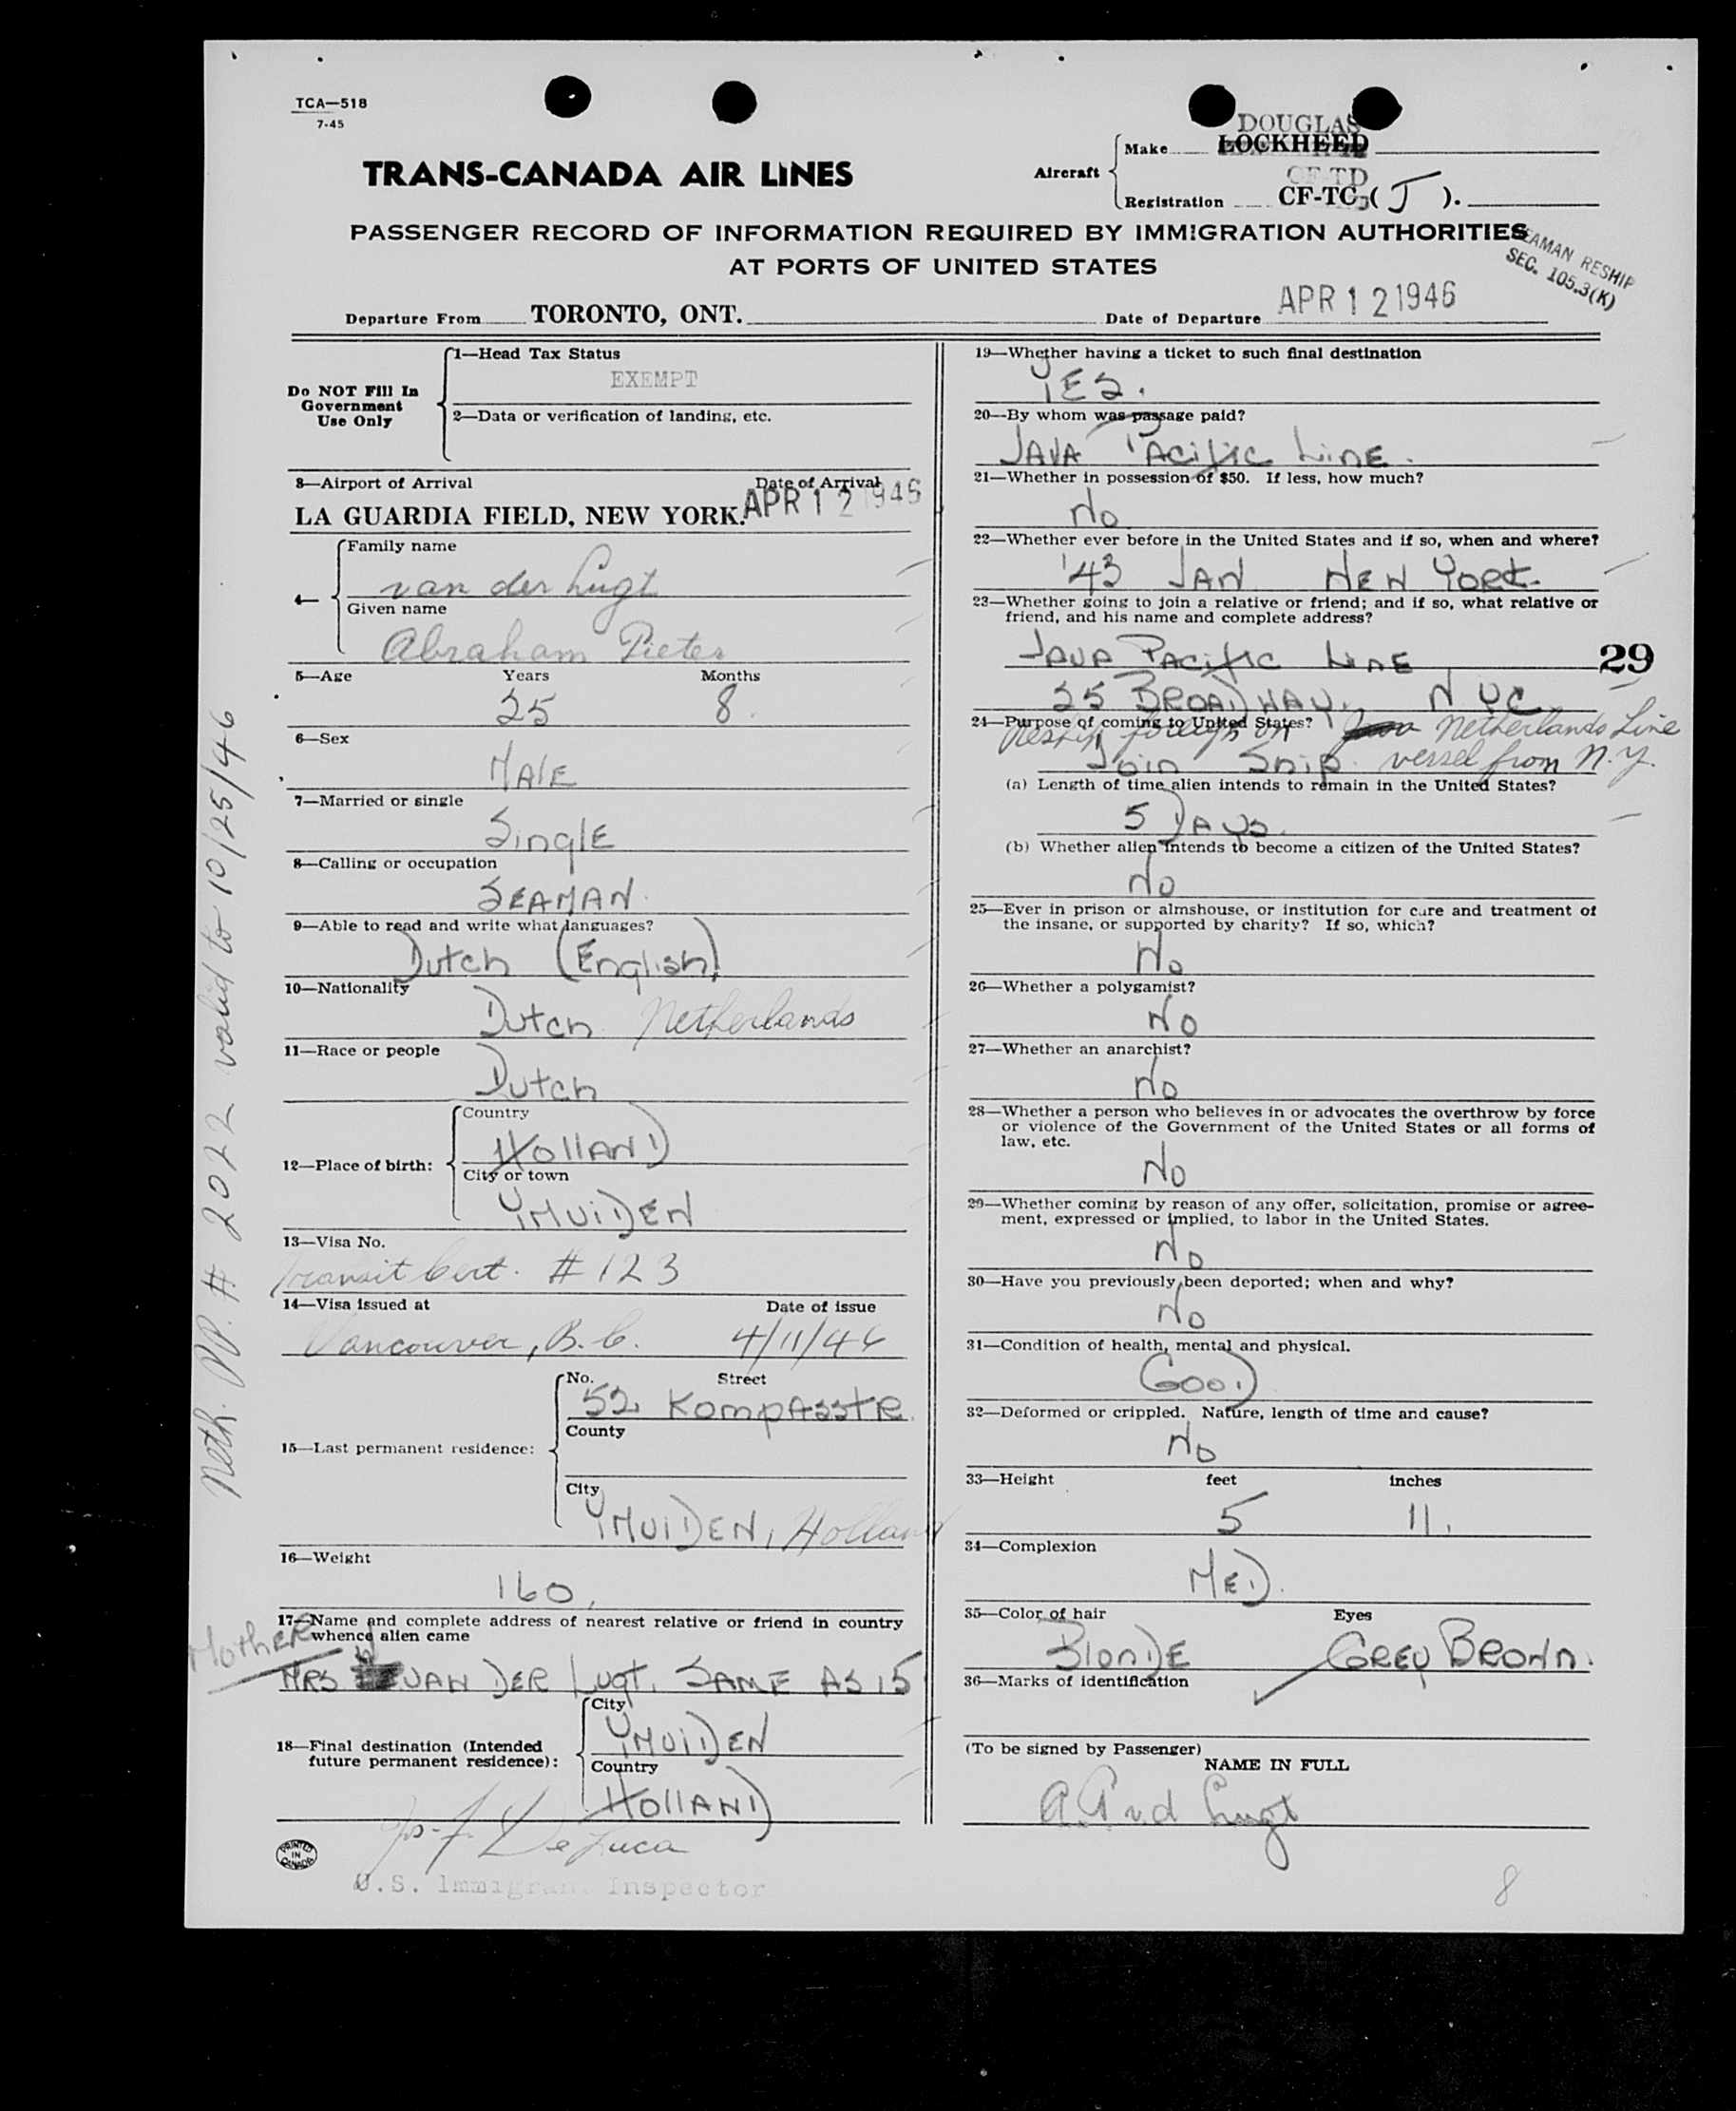 TCA—518
7-45
DOUGLAS
Make LOCKHEED
TRANS-CANADA AIR LINES
Aircraft
CF-TD
Registration CF-TC (J).
PASSENGER RECORD OF INFORMATION REQUIRED BY IMMIGRATION AUTHORITIES
AT PORTS OF UNITED STATES
SEAMAN RESHIP
SEC. 105.3(K)
Departure From TORONTO, ONT.
Date of Departure APR 12 1946
Do NOT Fill In
Government
Use Only
1—Head Tax Status
EXEMPT
2—Data or verification of landing, etc.
3—Airport of Arrival Date of Arrival
LA GUARDIA FIELD, NEW YORK. APR 12 1946
4—
Family name
van der Lugt
Given name
Abraham Pieter
5—Age Years Months
25 8
6—Sex
MALE
7—Married or single
SinglE
8—Calling or occupation
SEAMAN
9—Able to read and write what languages?
Dutch (English)
10—Nationality
Dutch Netherlands
11—Race or people
Dutch
12—Place of birth:
Country
HOllAND
City or town
YMUiDEN
13—Visa No.
Transit Cert. # 123
14—Visa issued at Date of issue
Vancouver, B.C. 4/11/46
15—Last permanent residence:
No. Street
52 KompAsstR.
County
City
YMUiDEN, Holland
16—Weight
160
17—Name and complete address of nearest relative or friend in country
whence alien came
MotheR
MRS VAN DER Lugt. SAME AS 15
18—Final destination (Intended
future permanent residence):
City
YMUiDEN
Country
HOllAND
Jos. F. DeLuca
U.S. Immigrant Inspector
PRINTED
IN
CANADA
Neth. PP. # 2022 valid to 10/25/46
19—Whether having a ticket to such final destination
YES.
20—By whom was passage paid?
JAVA PAcific LinE.
21—Whether in possession of $50. If less, how much?
No
22—Whether ever before in the United States and if so, when and where?
'43 JAN NEW YORK.
23—Whether going to join a relative or friend; and if so, what relative or
friend, and his name and complete address?
JAVA PAcific LinE
29
25 BROADWAY. NYC
24—Purpose of coming to United States?
Reship foreign on Netherlands Line
Join Ship vessel from N.Y.
(a) Length of time alien intends to remain in the United States?
5 DAYS.
(b) Whether alien intends to become a citizen of the United States?
No
25—Ever in prison or almshouse, or institution for care and treatment of
the insane, or supported by charity? If so, which?
No
26—Whether a polygamist?
No
27—Whether an anarchist?
No
28—Whether a person who believes in or advocates the overthrow by force
or violence of the Government of the United States or all forms of
law, etc.
No
29—Whether coming by reason of any offer, solicitation, promise or agree-
ment, expressed or implied, to labor in the United States.
No
30—Have you previously been deported; when and why?
No
31—Condition of health, mental and physical.
GooD
32—Deformed or crippled. Nature, length of time and cause?
No
33—Height feet inches
5 11.
34—Complexion
MED.
35—Color of hair Eyes
BlonDE GREY BROWN.
36—Marks of identification
(To be signed by Passenger)
NAME IN FULL
A.P. v.d Lugt
8